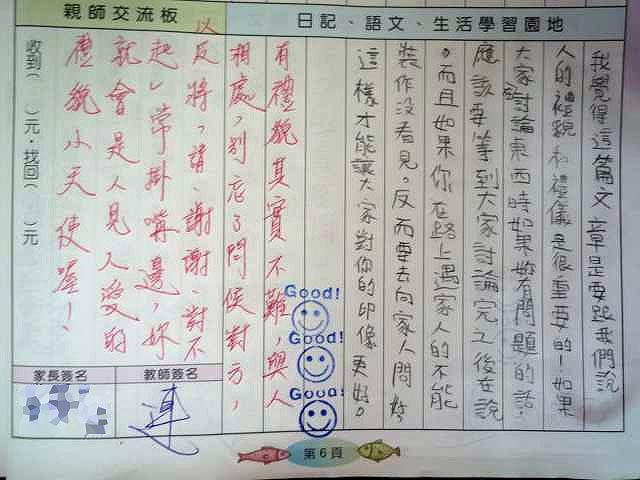 日記、語文、生活學習園地
我覺得這篇文章是要跟我們說
人的禮貌和禮儀是很重要的!如果
大家討論東西時如果妳有問題的話,
應該要等到大家討論完之後在說
。而且如果你在路上遇家人的不能
裝作沒看見。反而要去向家人問好
這樣才能讓大家對你的印像更好。
Good!
Good!
Good!
有禮貌其實不難,與人
相處,別忘了問候對方,
以及將「請、謝謝、對不
起」常掛嘴邊,妳
就會是人見人愛的
禮貌小天使喔!
親師交流板
收到( )元.找回( )元
教師簽名
連
家長簽名
第6頁